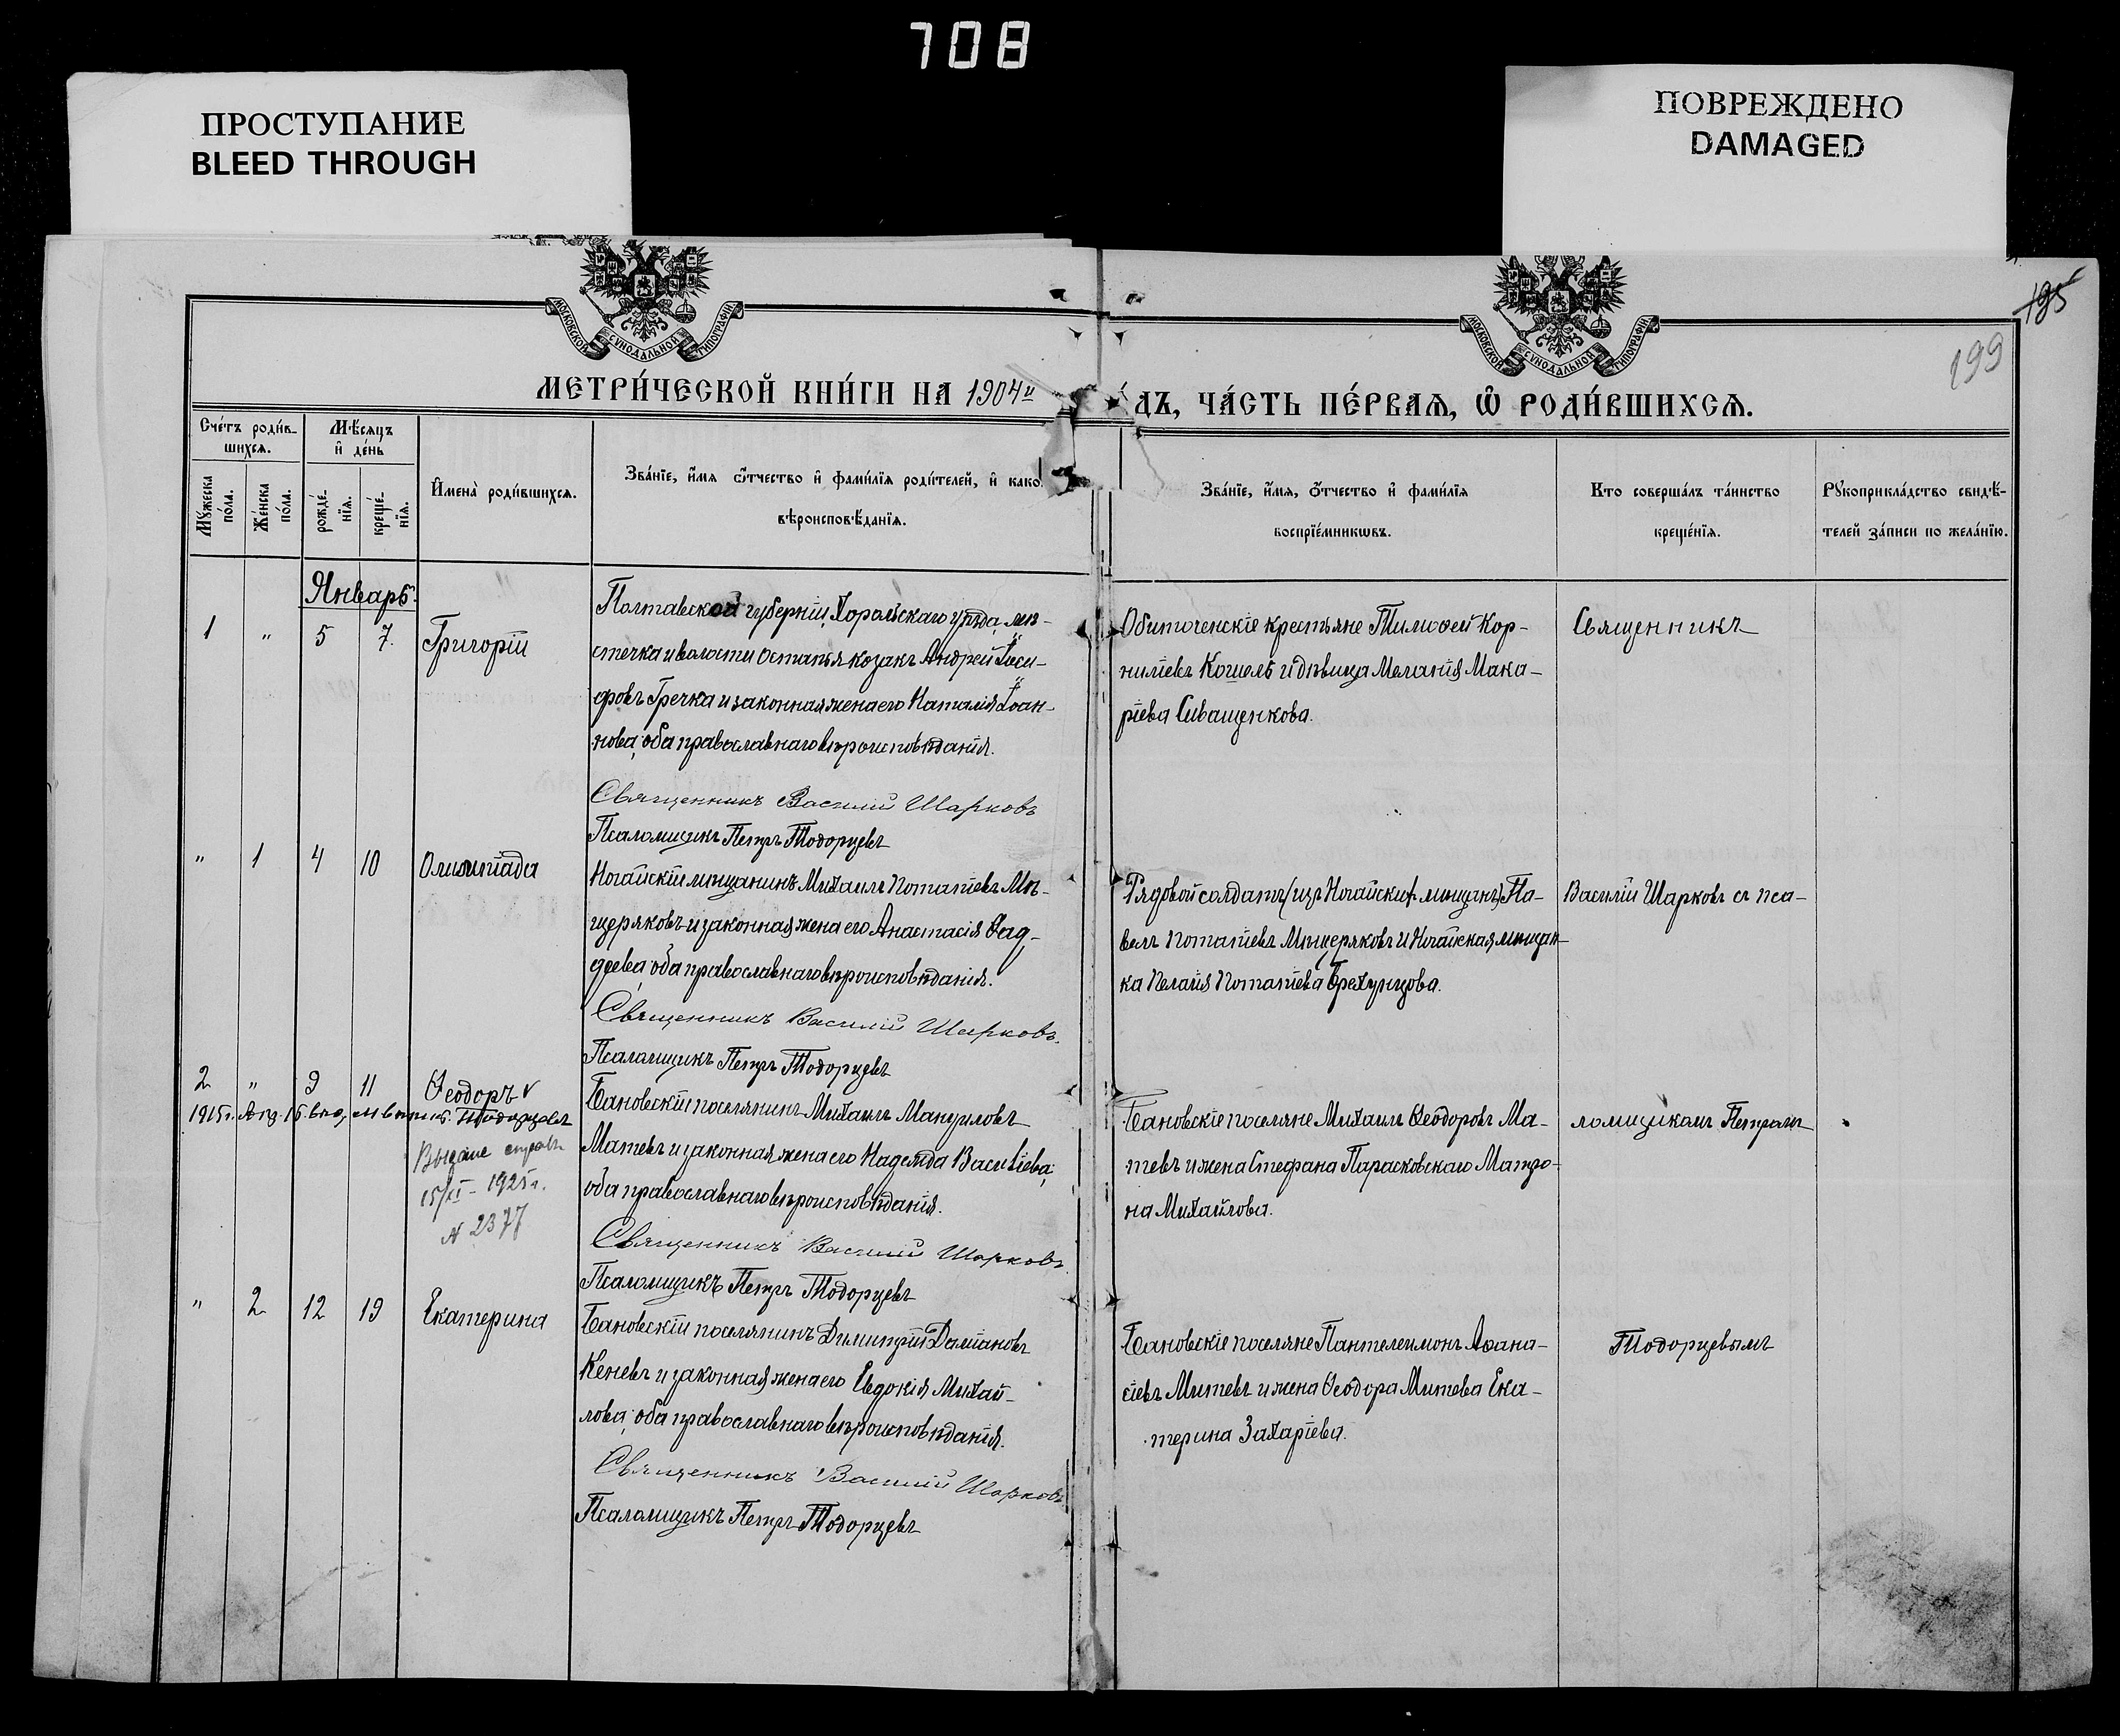 708
ПРОСТУПАНИЕ
BLEED THROUGH
ПОВРЕЖДЕНО
DAMAGED
МОСКОВСКОЙ СѴНОДАЛЬНОЙ ТИПОГРАФІИ
МОСКОВСКОЙ СѴНОДАЛЬНОЙ ТИПОГРАФІИ
195
199
МЕТРИ́ЧЕСКОЙ КНИ́ГИ НА 1904й
ДЪ, ЧА́СТЬ ПЕ́РВАѦ, Ѡ҆ РОДИ́ВШИХСѦ.
Сче́тъ роди́в-
шихсѧ.
Мꙋ́жеска по́ла.
Же́нска по́ла.
Мѣ́сѧцъ
и҆ де́нь
рожде́-
нїѧ.
креще́-
нїѧ.
И҆мена̀ роди́вшихсѧ.
Зва́нїе, и҆́мѧ ѻ҆́тчество и҆ фами́лїѧ роди́телей, и҆ како
вѣроисповѣ́данїѧ.
Зва́нїе, и҆́мѧ, ѻ҆́тчество и҆ фами́лїѧ
воспрїе́мникѡвъ.
Кто соверша́лъ та́инство
креще́нїѧ.
Рꙋкоприкла́дство свидѣ́-
телей за́писи по жела́нїю.
Январь.
1 " 5 7. Григорій
Полтавской губерніи, Хорольскаго уѣзда, мѣ-
стечка и волости Остапья козакъ Андрей Іоси-
фовъ Гречка и законная жена его Наталія Іоан-
нова, оба православнаго вѣроисповѣданія.
Священникъ Василій Шарковъ
Псаломщикъ Петръ Тодорцевъ
Обиточенскіе крестьяне Тимоѳей Кор-
ниліевъ Кошель и дѣвица Меланія Мака-
ріева Сиващенкова.
Священникъ
" 1 4 10 Олимпіада
Ногайскій мѣщанинъ Михаилъ Потапіевъ Мѣ-
щеряковъ и законная жена его Анастасія Ѳад-
деева, оба православнаго вѣроисповѣданія.
Священникъ Василій Шарковъ.
Псаломщикъ Петръ Тодорцевъ
Рядовой солдатъ (изъ Ногайскихъ мѣщанъ) Па-
велъ Потапіевъ Мѣщеряковъ и Ногайская мѣщан-
ка Пелагія Потапіева Брехунцова.
Василій Шарковъ съ пса-
2 " 9 11 Ѳеодоръ
1915г. Тодорцевъ
15/XI - 1925г.
№ 2377
Бановскій поселянинъ Михаилъ Мануиловъ
Матевъ и законная жена его Надежда Василіева,
оба православнаго вѣроисповѣданія.
Священникъ Василій Шарковъ
Псаломщикъ Петръ Тодорцевъ
Бановскіе поселяне Михаилъ Ѳеодоровъ Ма-
тевъ и жена Стефана Парасковскаго Матро-
на Михайлова.
ломщикомъ Петромъ
" 2 12 19 Екатерина
Бановскій поселянинъ Димитрій Даміановъ
Кеневъ и законная жена его Евдокія Михай-
лова, оба православнаго вѣроисповѣданія.
Священникъ Василій Шарковъ
Псаломщикъ Петръ Тодорцевъ
Бановскіе поселяне Пантелеимонъ Аѳана-
сіевъ Митевъ и жена Ѳеодора Митева Ека-
терина Захаріева.
Тодорцевымъ